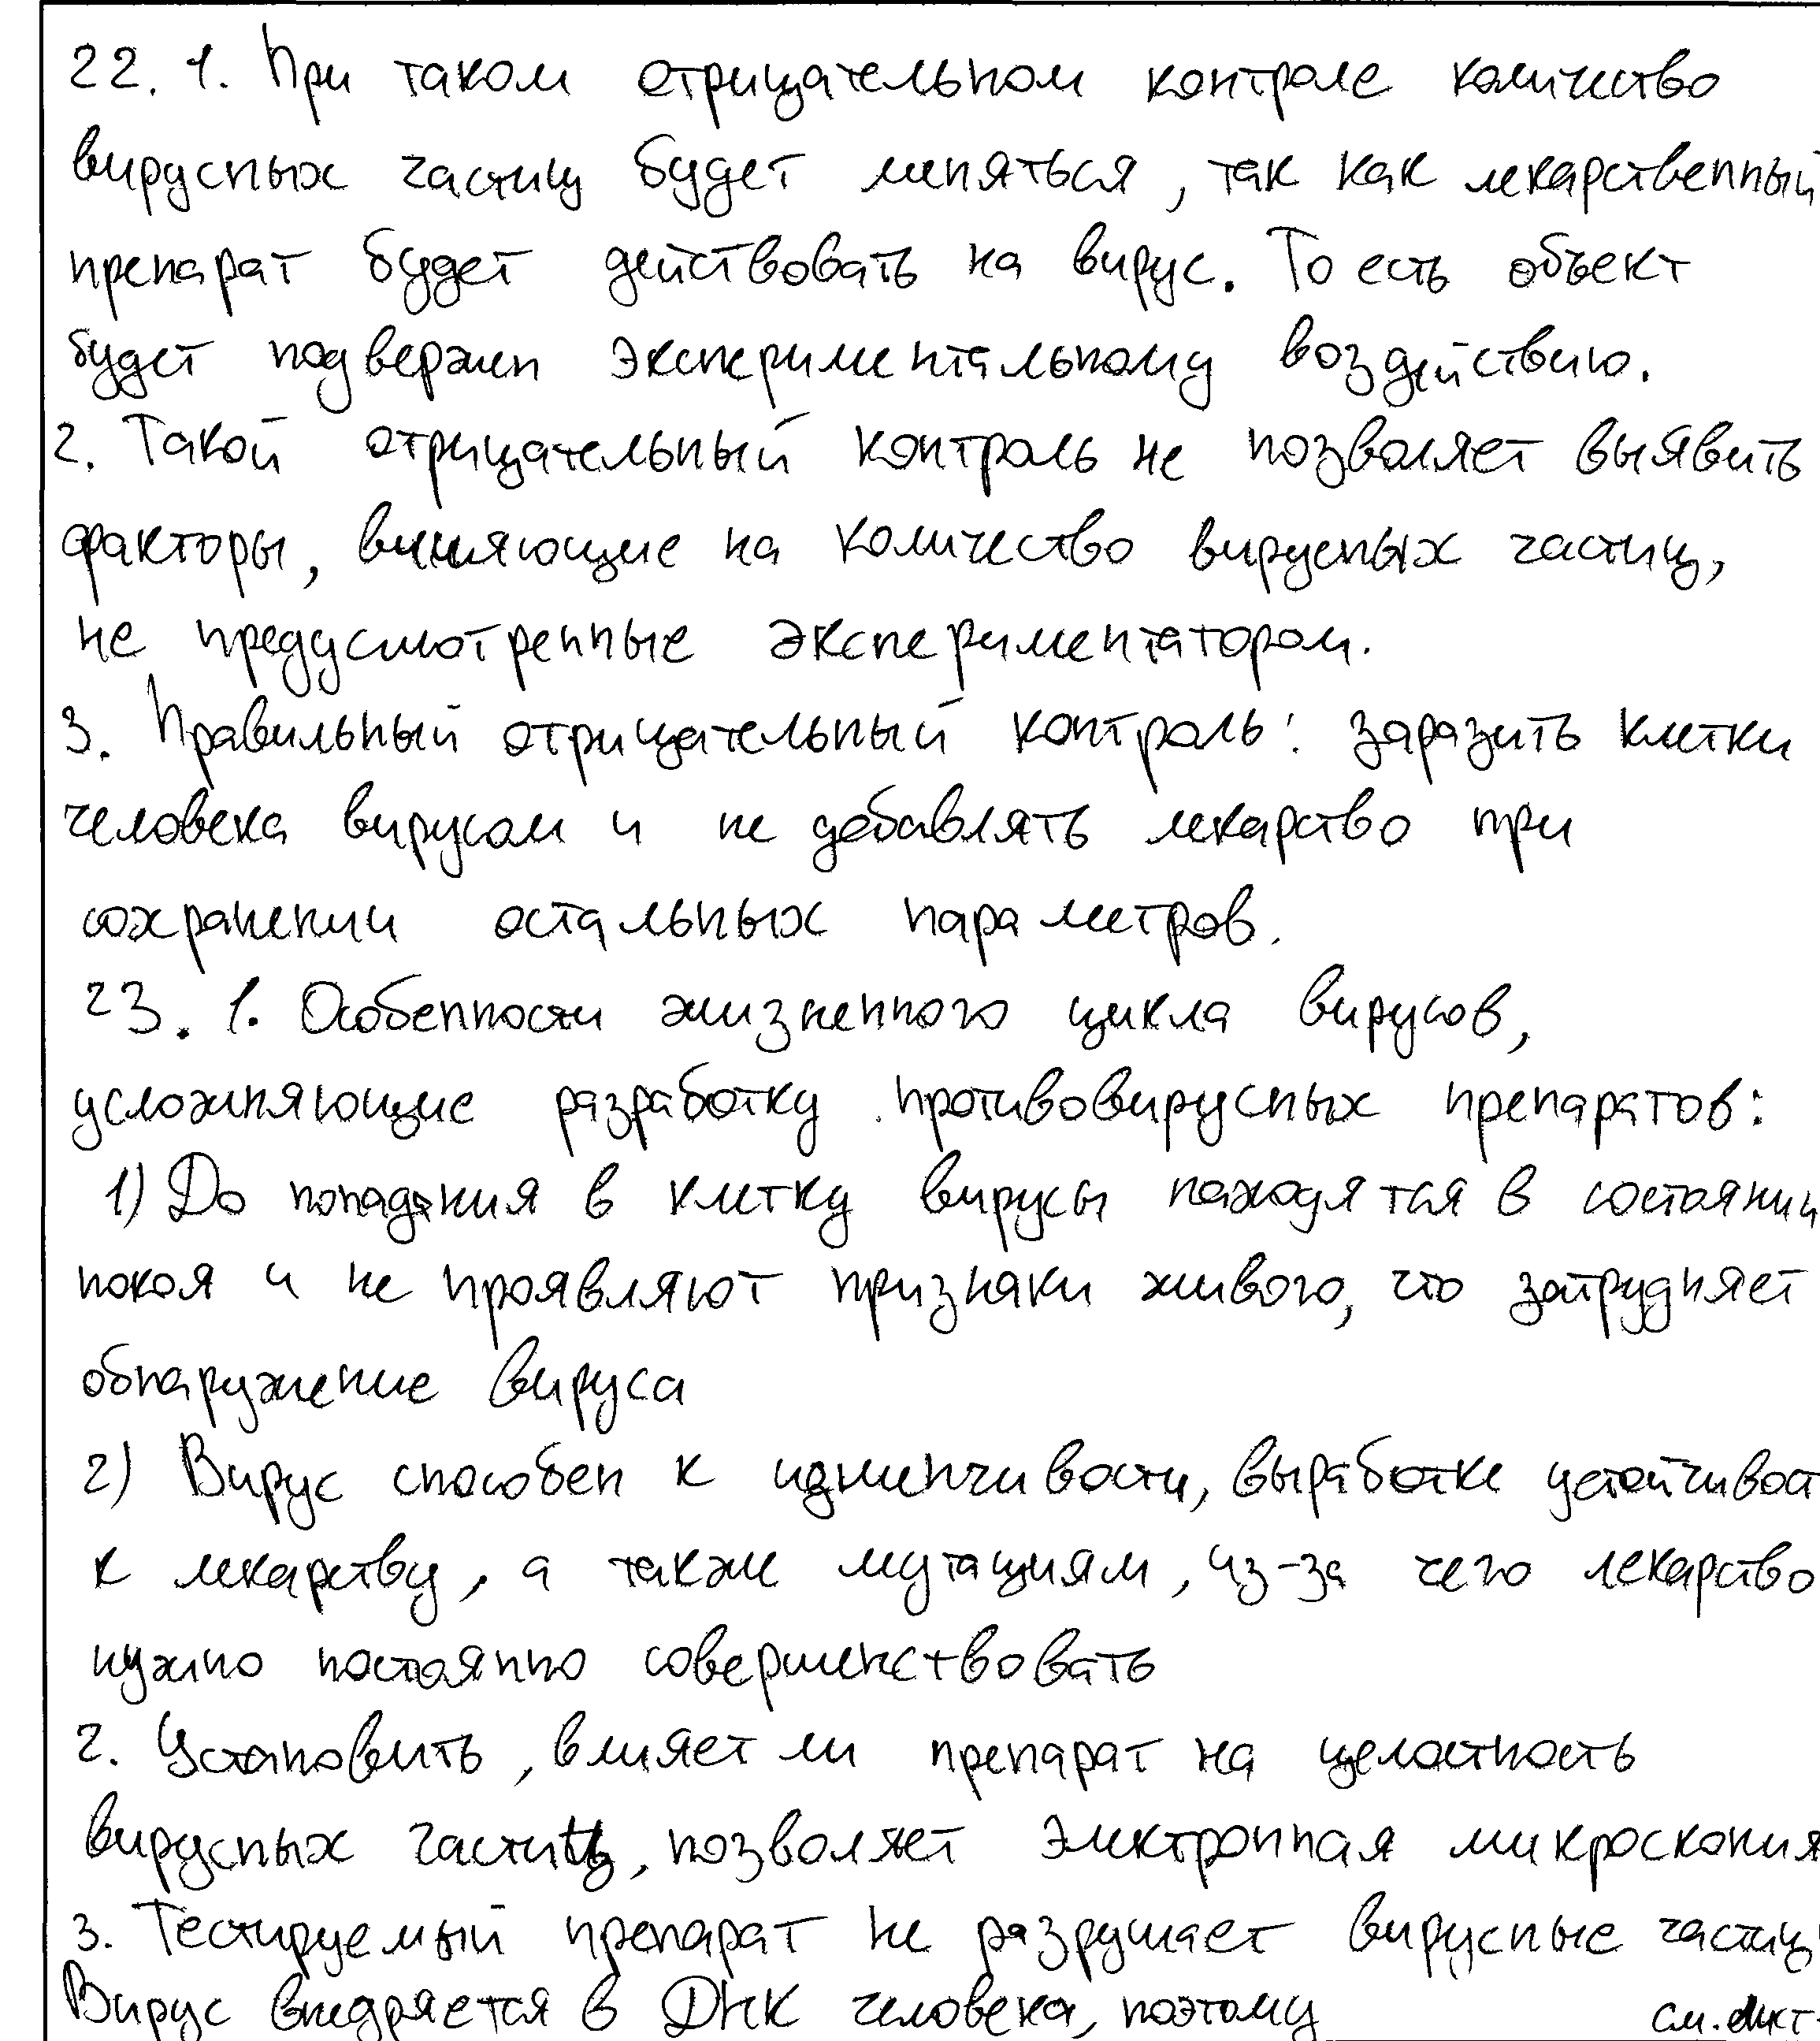 22. 1. При таком отрицательном контроле количество
вирусных частиц будет меняться, так как лекарственный
препарат будет действовать на вирус. То есть объект
будет подвержен экспериментальному воздействию.
2. Такой отрицательный контроль не позволяет выявить
факторы, влияющие на количество вирусных частиц,
не предусмотренные экспериментатором.
3. Правильный отрицательный контроль: заразить клетки
человека вирусом и не добавлять лекарство при
сохранении остальных параметров.
23. 1. Особенности жизненного цикла вирусов,
усложняющие разработку противовирусных препаратов:
1) До попадания в клетку вирусы находятся в состоянии
покоя и не проявляют признаки живого, что затрудняет
обнаружение вируса
2) Вирус способен к изменчивости, выработке устойчивост
к лекарству, а также мутациям, из-за чего лекарство
нужно постоянно совершенствовать
2. Установить, влияет ли препарат на целостность
вирусных частиц, позволяет электронная микроскопия
3. Тестируемый препарат не разрушает вирусные частиц
Вирус внедряется в ДНК человека, поэтому см. лист